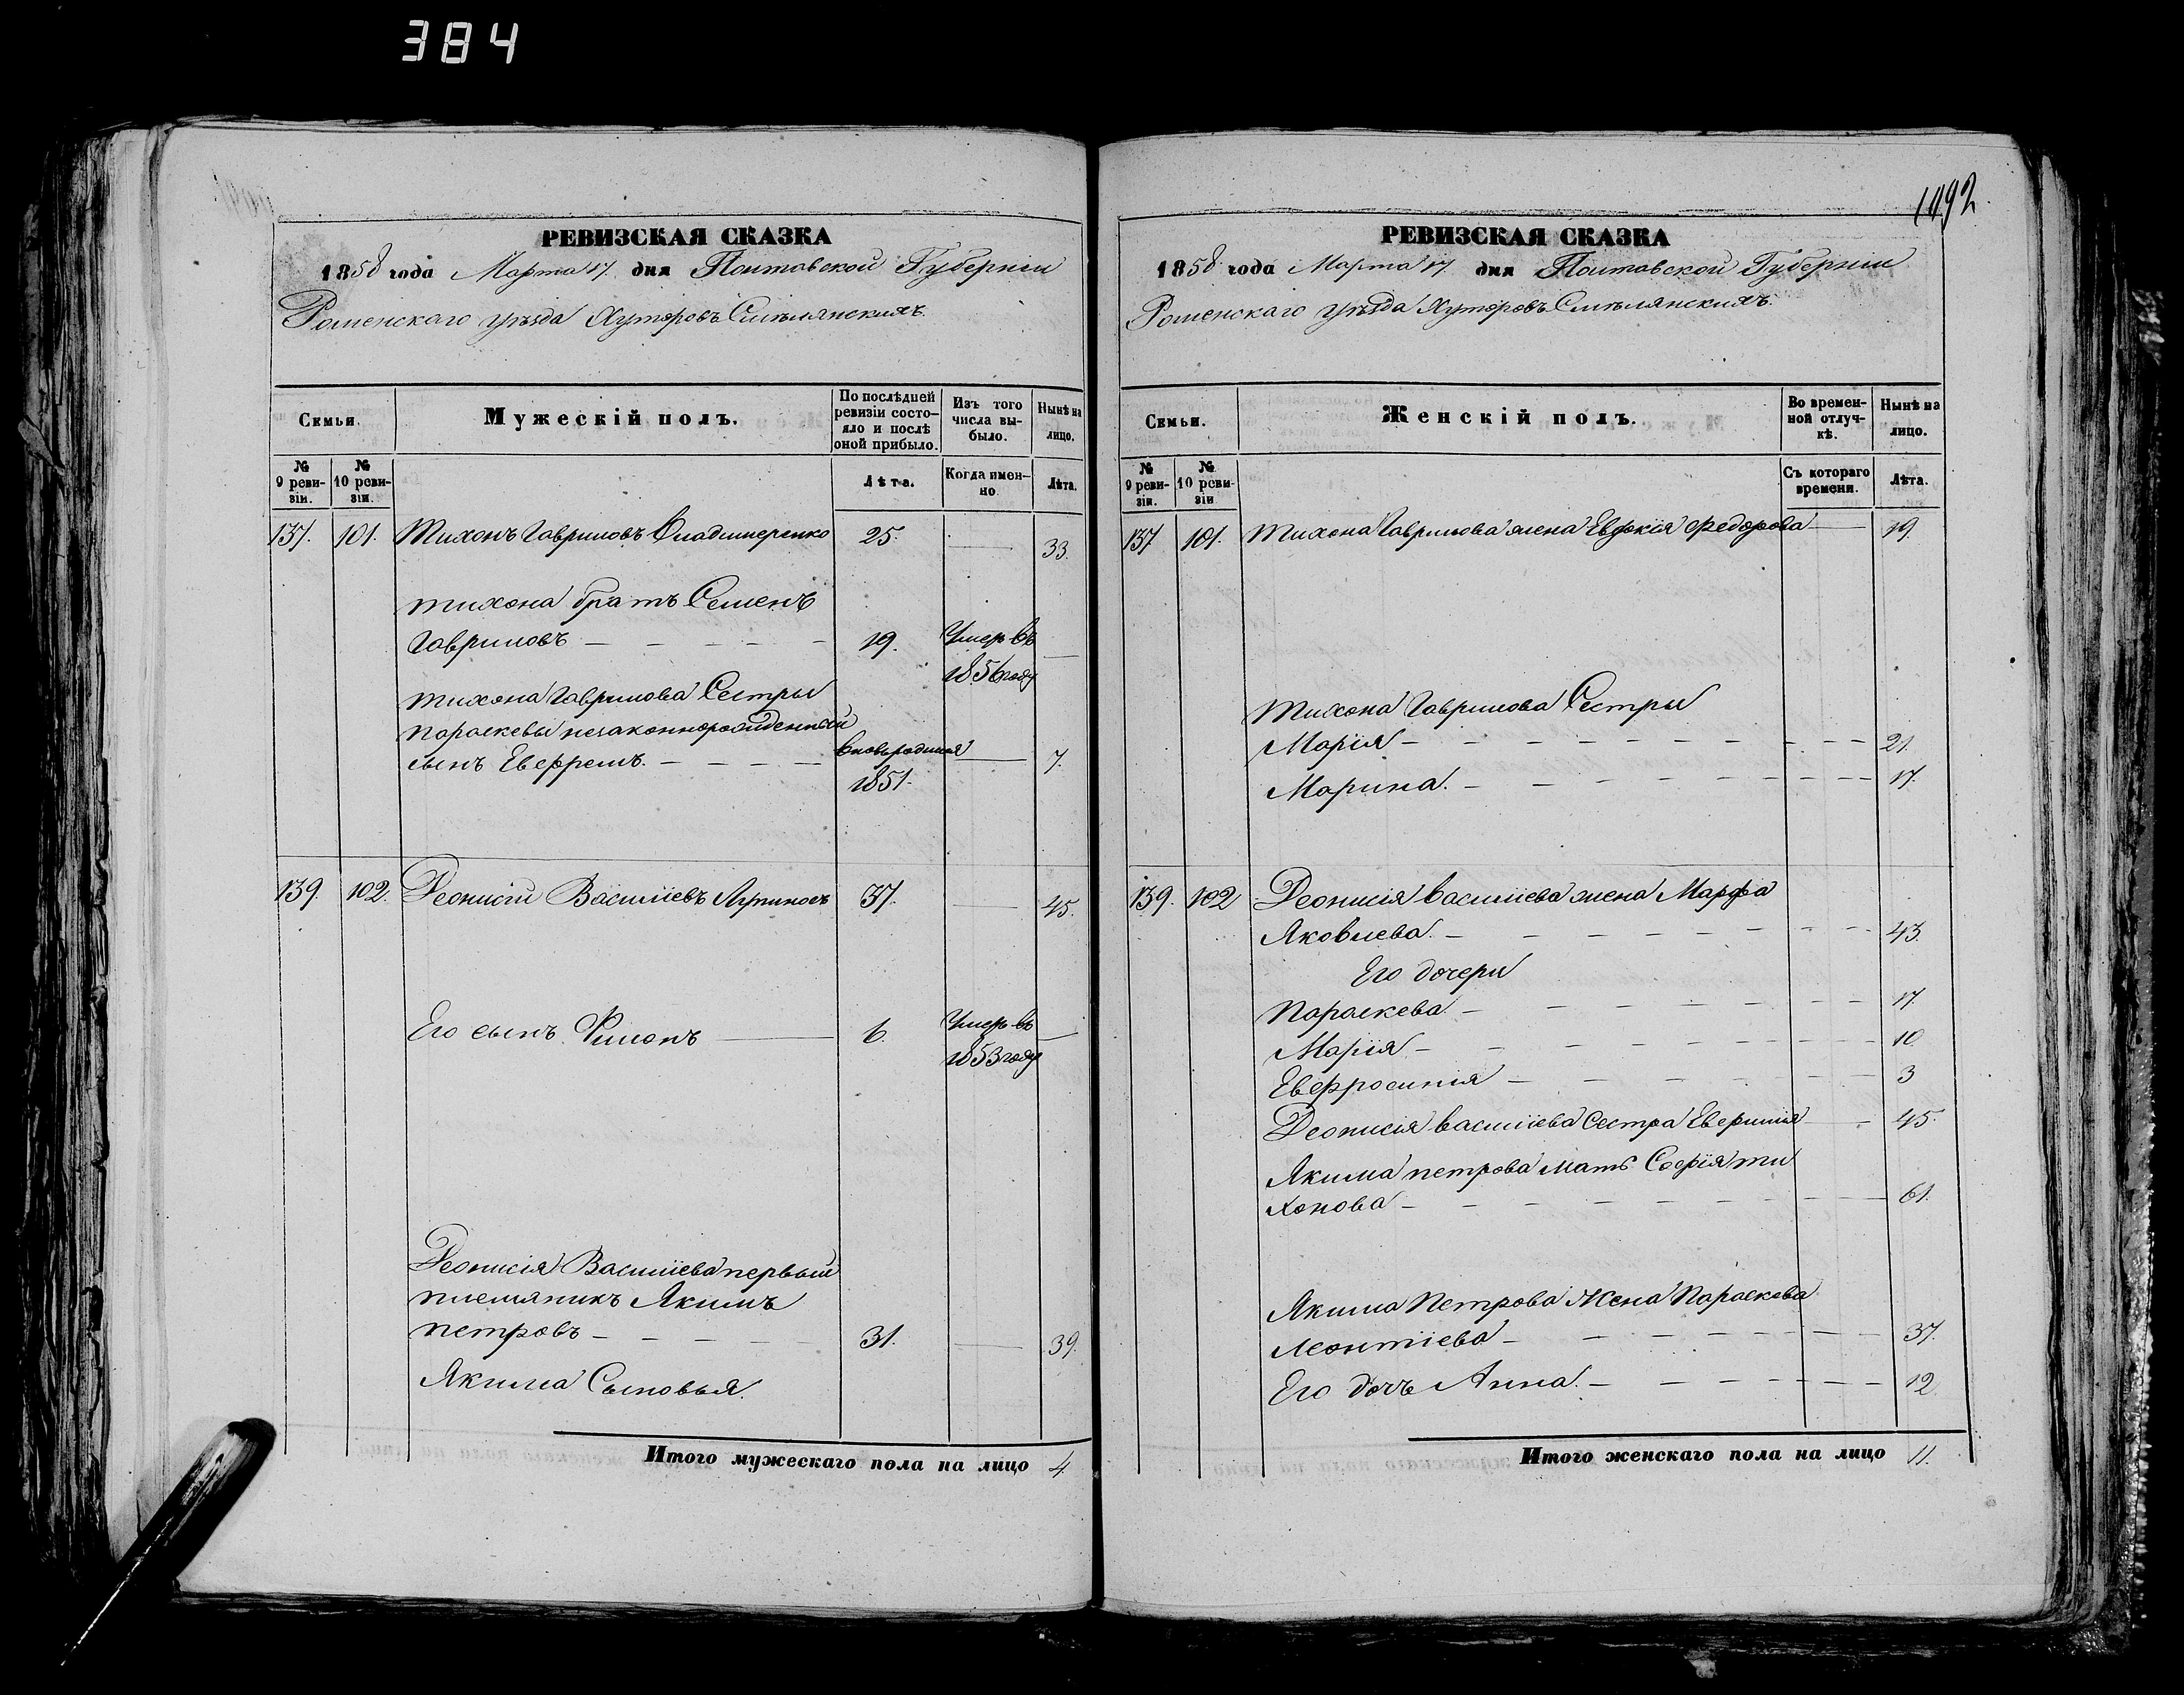 384
1092.
РЕВИЗСКАЯ СКАЗКА
1858 года Марта 17. дня Полтавской Губерніи
Роменскаго уѣзда Хуторовъ Смѣлянскихъ.
Семьи.
Мужескій полъ.
По послѣдней ревизіи состо-
яло и послѣ оной прибыло.
Изъ того числа вы-
было.
Нынѣ на лицо.
№ 9 реви-
зіи.
№ 10 реви-
зіи.
Лѣта.
Когда имен-
но
Лѣта.
137. 101. Тихонъ Гавриловъ Владимеренко 25. 33.
Тихона братъ Семенъ
Гавриловъ 19. Умеръ въ
1856 году
Тихона Гаврилова Сестры
Параскевы незаконнорожденный
сынъ Евфремъ. вновьродился 7.
1851.
139. 102. Деонисій Василіевъ 37. 45.
Его сынъ Филонъ 6. Умеръ въ
1853 году
Деонисія Василіева первый
племяникъ Якимъ
Петровъ 31. 39.
Якима Сыновья.
Итого мужескаго пола на лицо 4.
РЕВИЗСКАЯ СКАЗКА
1858 года Марта 17 дня Полтавской Губерніи
Роменскаго уѣзда Хуторовъ Смѣлянскихъ.
Семьи.
Женскій полъ.
Во времен-
ной отлуч-
кѣ.
Нынѣ на лицо.
№ 9 реви-
зіи.
№ 10 реви-
зіи
Съ котораго времени.
Лѣта.
137 101. Тихона Гаврилова жена Евдокія Федорова 19.
Тихона Гаврилова Сестры
Марія 21.
Марина. 17.
139. 102 Деонисія Василіева жена Марфа
Яковлева. 43.
Его дочери
Параскева 17.
Марія 10
Евфросинія 3
Деонисія Василіева Сестра Евфимія 45.
Якима Петрова мать Софія Ти
хонова 61.
Якима Петрова Жена Параскева
Леонтіева 37.
Его дочь Анна. 12.
Итого женскаго пола на лицо 11.